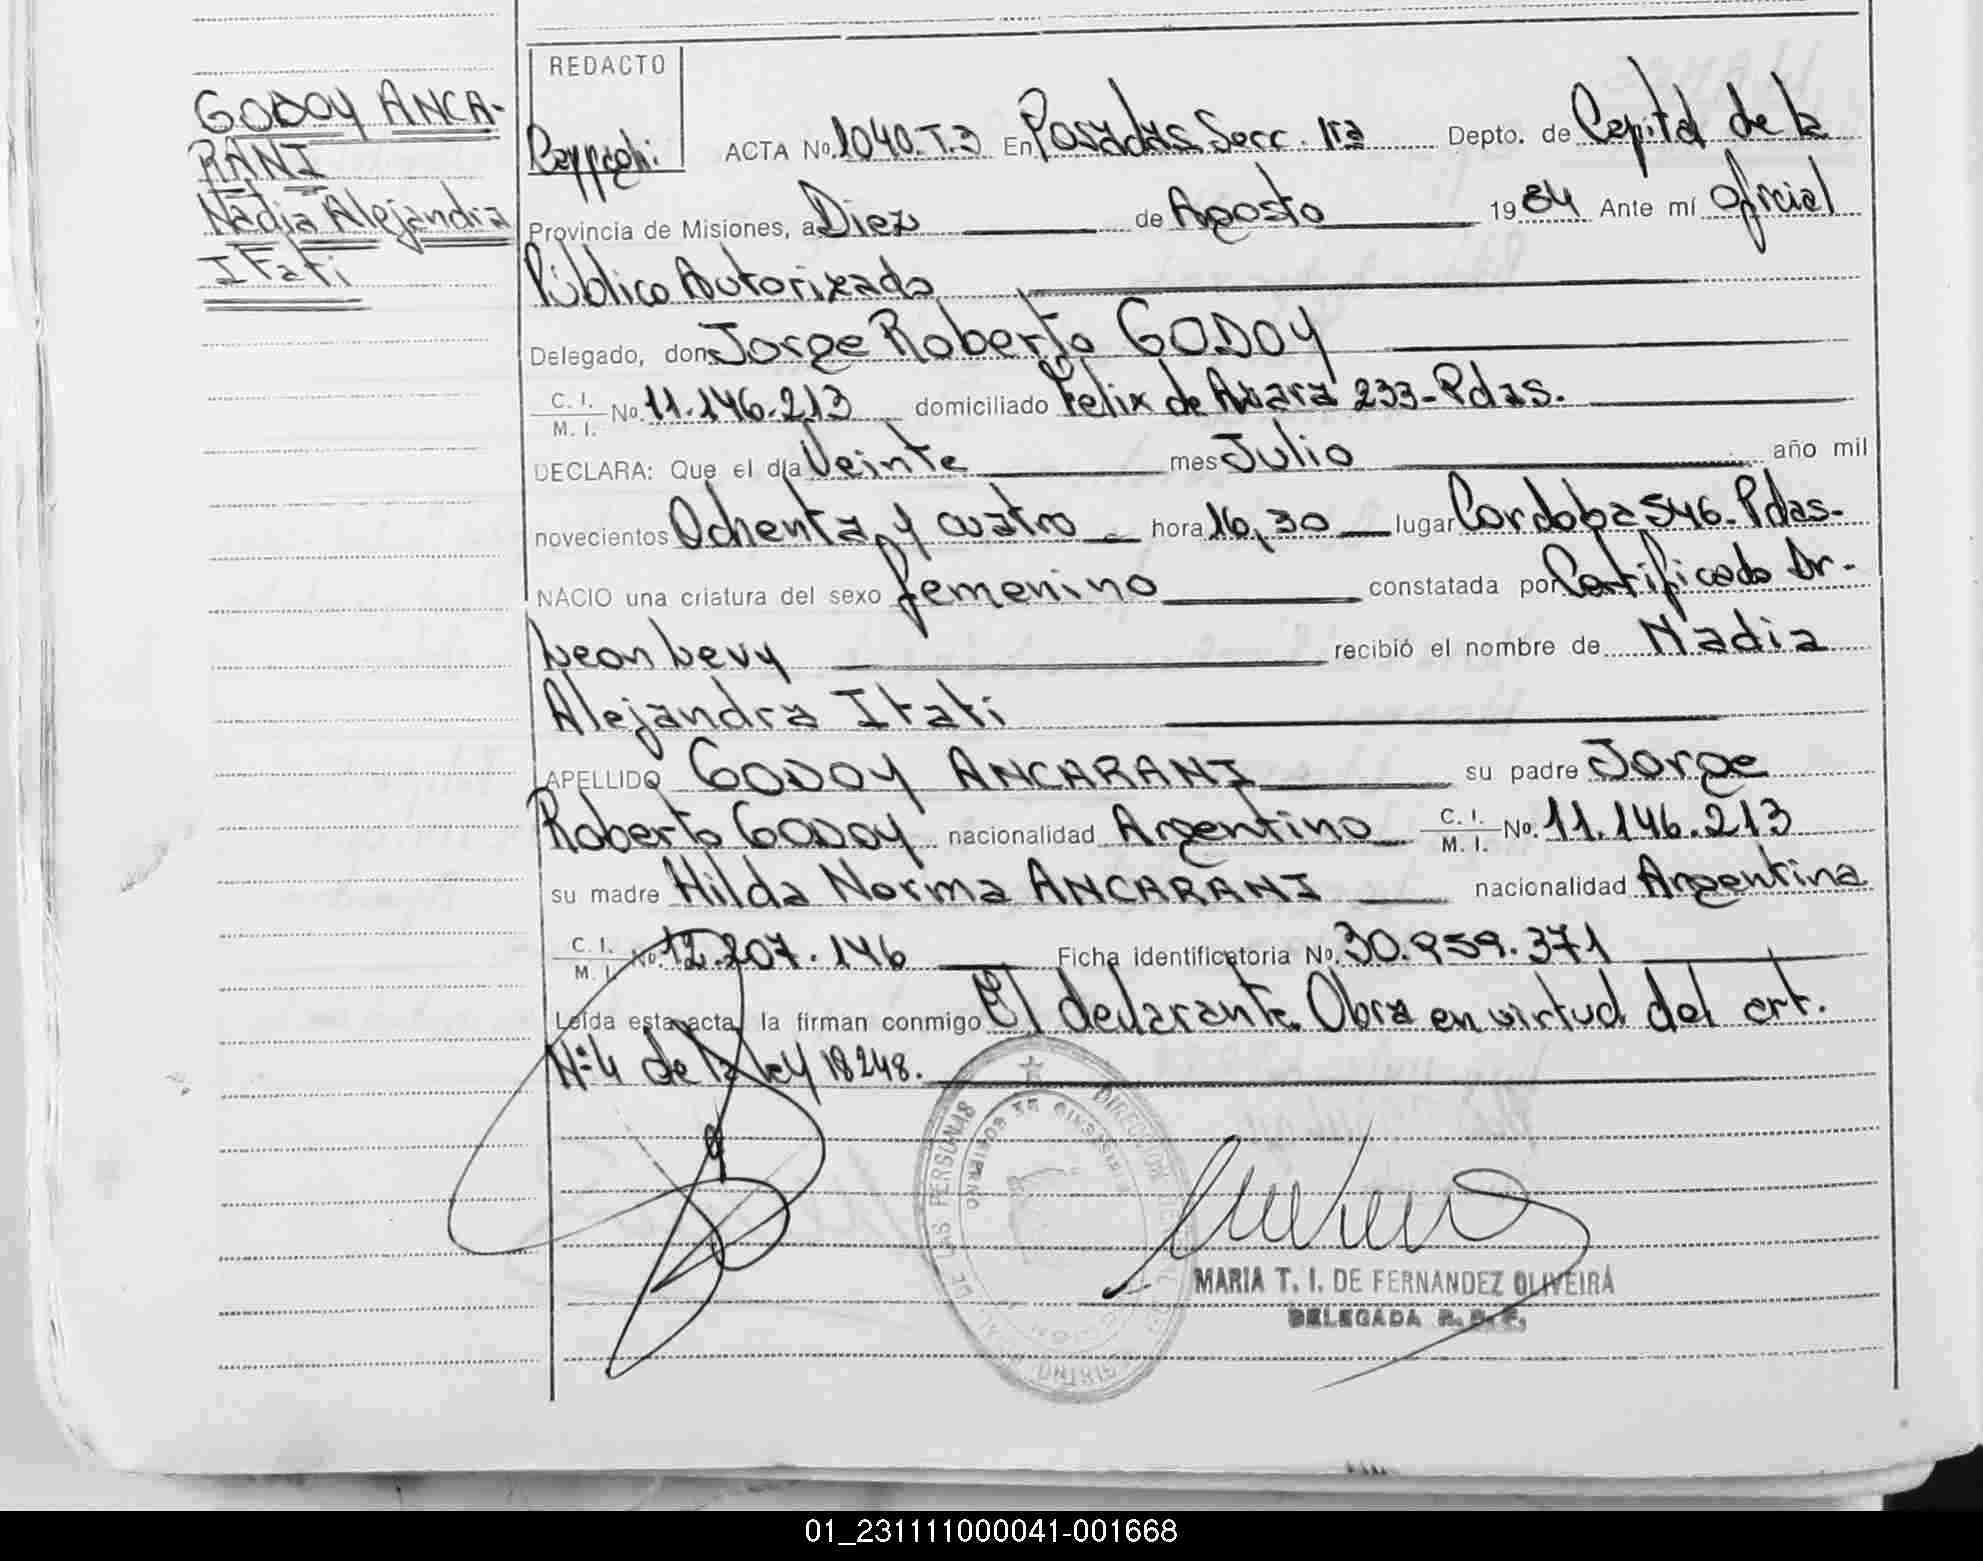 GODOY ANCA-
RANI
Nadia Alejandra
Itati
REDACTO
ACTA No. 1040. T. 3 En Posadas Secc. 1ra Depto. de Capital de la
Provincia de Misiones, a Diez de Agosto 1984 Ante mí oficial
Público Autorizado
Delegado, don Jorge Roberto GODOY
C. I.
M. I. No. 11.146.213 domiciliado Felix de Azara 233-Pdas.
DECLARA: Que el día Veinte mes Julio año mil
novecientos Ochenta y cuatro hora 16,30 lugar Cordoba 546-Pdas-
NACIO una criatura del sexo femenino constatada por Certificado Dr.
Leon Levy recibió el nombre de Nadia
Alejandra Itati
APELLIDO GODOY ANCARANI su padre Jorge
Roberto GODOY nacionalidad Argentino C. I.
M. I. No. 11.146.213
su madre Hilda Norma ANCARANI nacionalidad Argentina
C. I.
M. I. No. 12.207.146 Ficha identificatoria No. 30.959.371
Leída esta acta, la firman conmigo El declarante. Obra en virtud del art.
Nº 4 de la ley 18248.
MARIA T. I. DE FERNANDEZ OLIVEIRA
DELEGADA
01_231111000041-001668